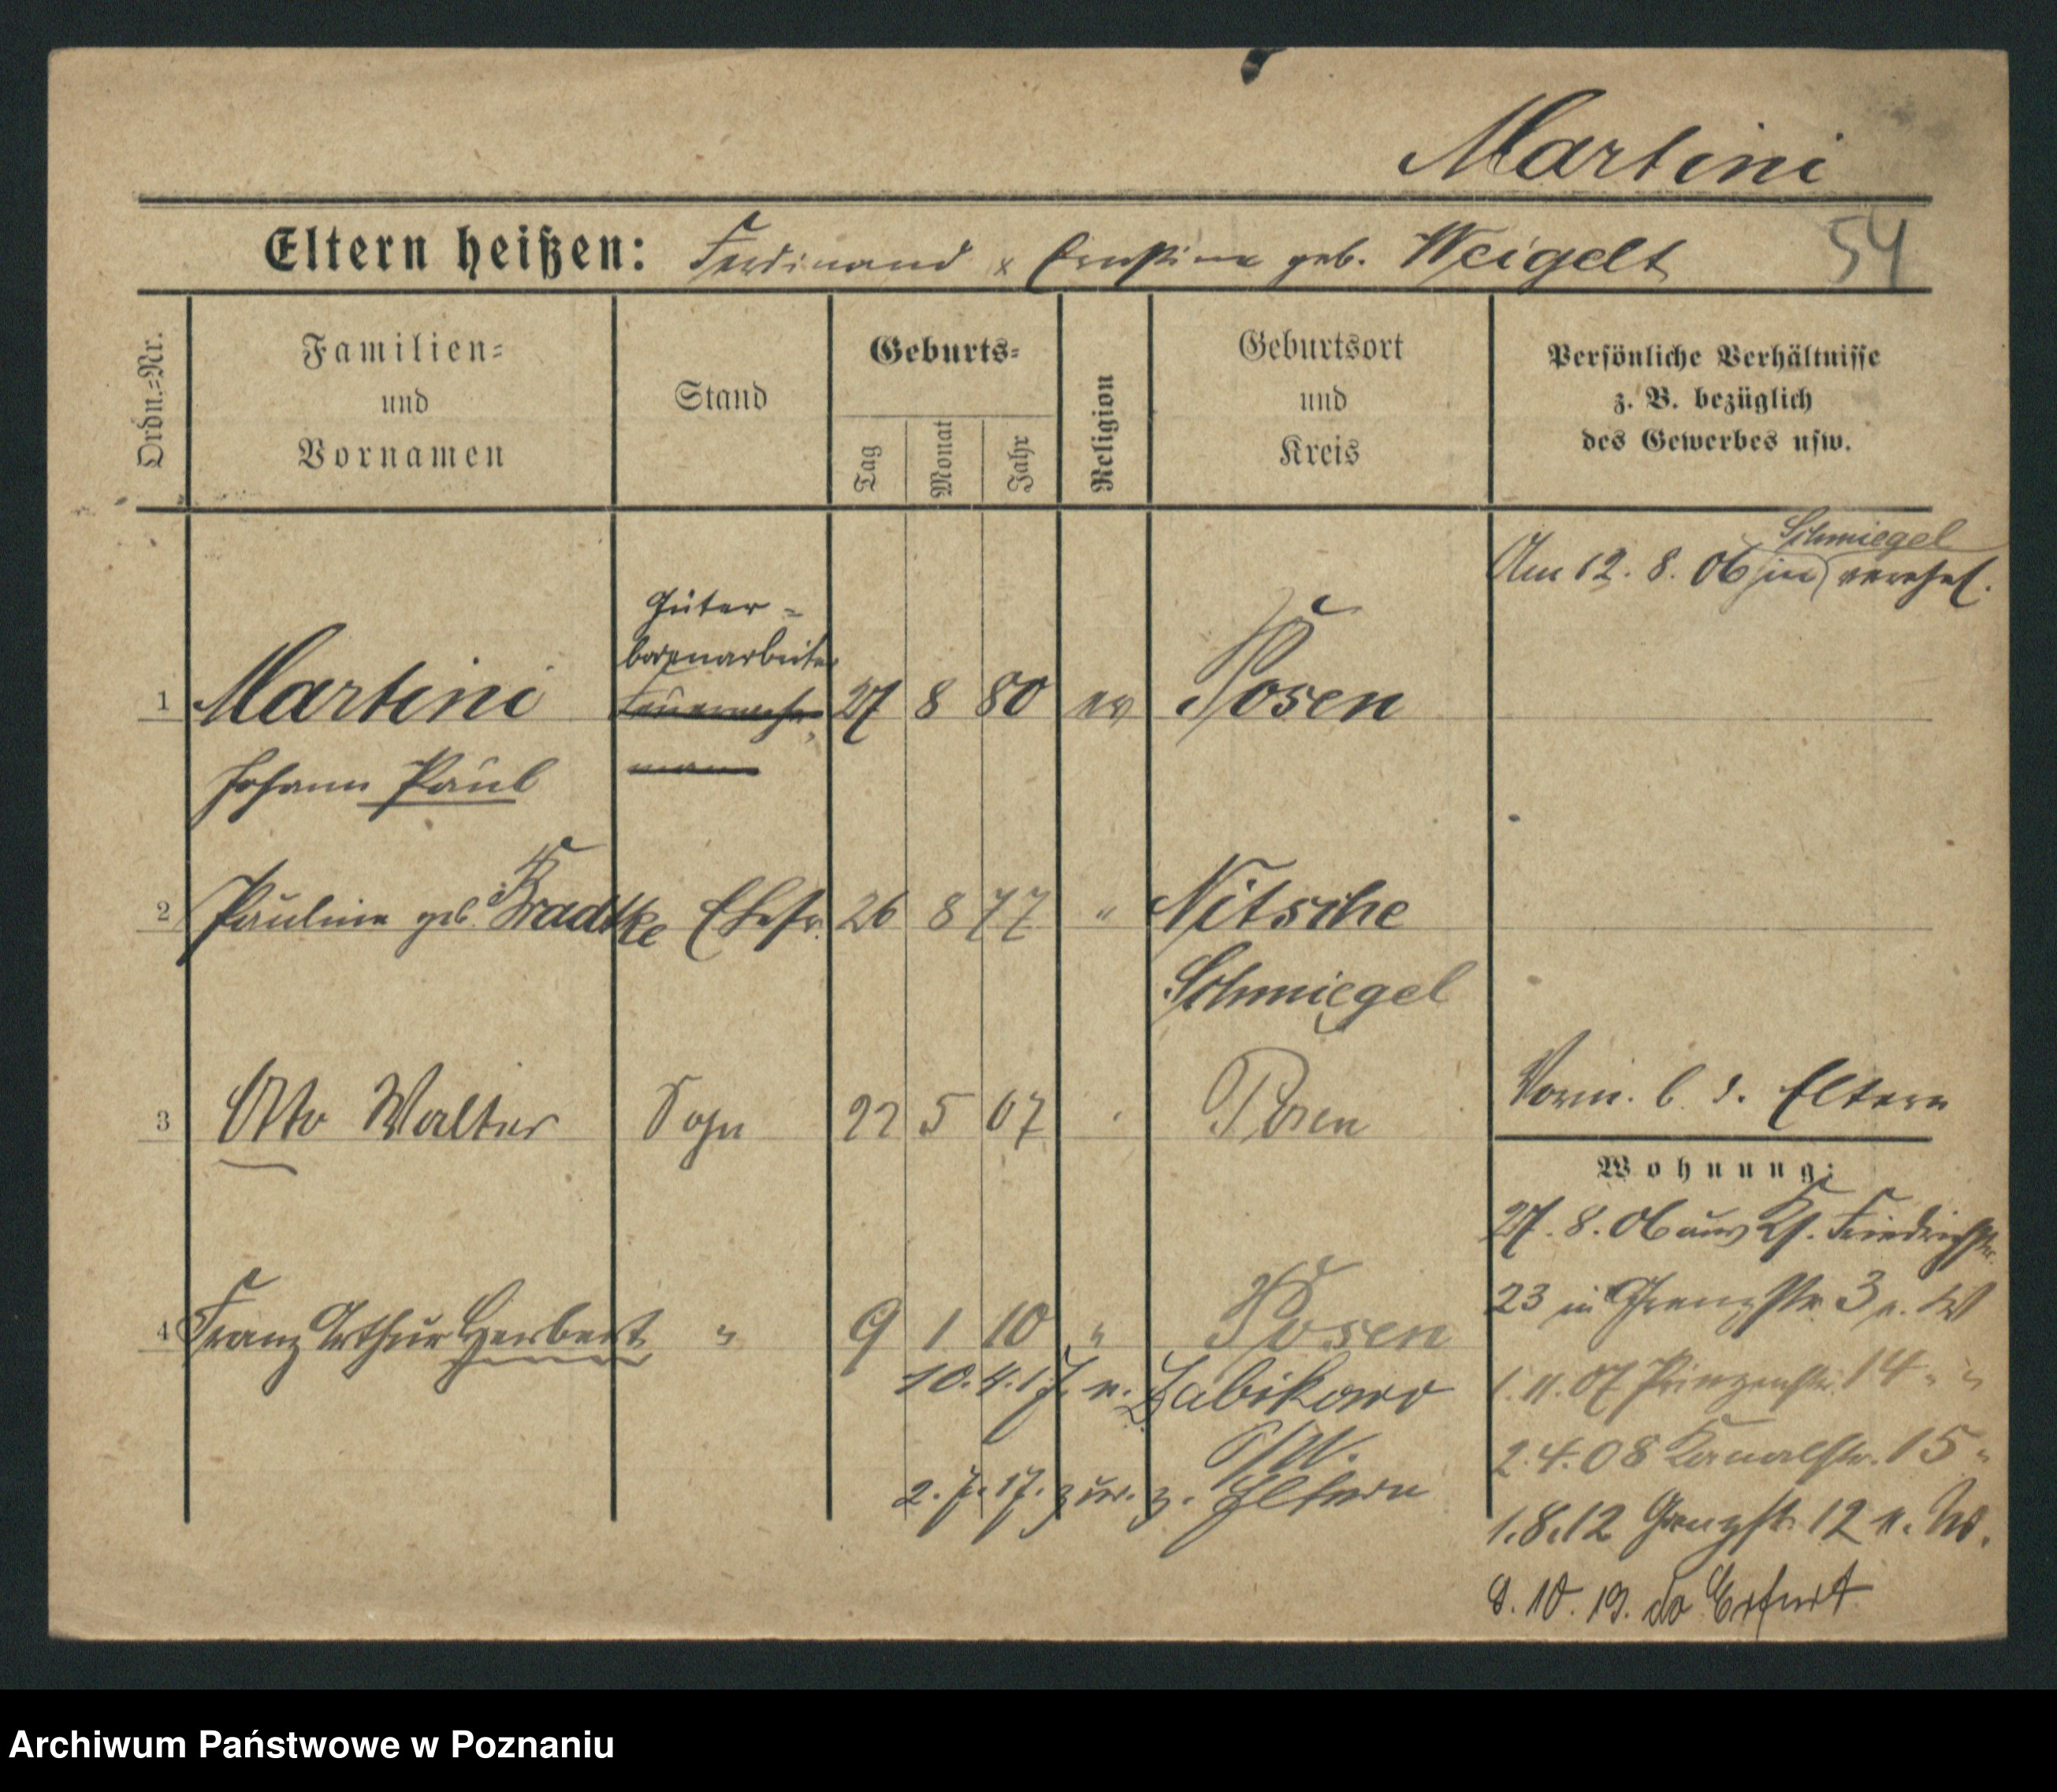 Martini
54
Eltern heißen: Ferdinand x Ernstine geb. Weigelt
Ordn.=Nr.
Familien=
und
Vornamen
Stand
Geburts=
Tag
Monat
Jahr
Religion
Geburtsort
und
Kreis
Persönliche Verhältnisse
z. B. bezüglich
des Gewerbes usw.
Schmiegel
Am 12. 8. 06 in verehel.
Güter=
bodenarbeiter
1 Martini Feuerwehr= 27 8 80 ev Posen
mann
Johann Paul
2 Pauline geb. Bradtke Ehefr. 26 8 77 " Nitsche
Schmiegel
3 Otto Walter Sohn 22 5 07 Posen
Vorm. b. d. Eltern
Wohnung:
27. 8. 06 aus Kl. Friedrichstr.
23 in Grenzstr. 3 n. W
4 Franz Arthur Herbert " 9 1 10 " Posen
10. 4. 17. n. Zabikowo
1. 11. 07 Prinzenstr. 14 " "
P/W.
2. 4. 08 Kanalstr. 15 "
2. 7. 17. zur. z. Eltern
1. 8. 12 Grenzstr. 12 n. W.
8. 10. 19. do Erfurt
Archiwum Państwowe w Poznaniu